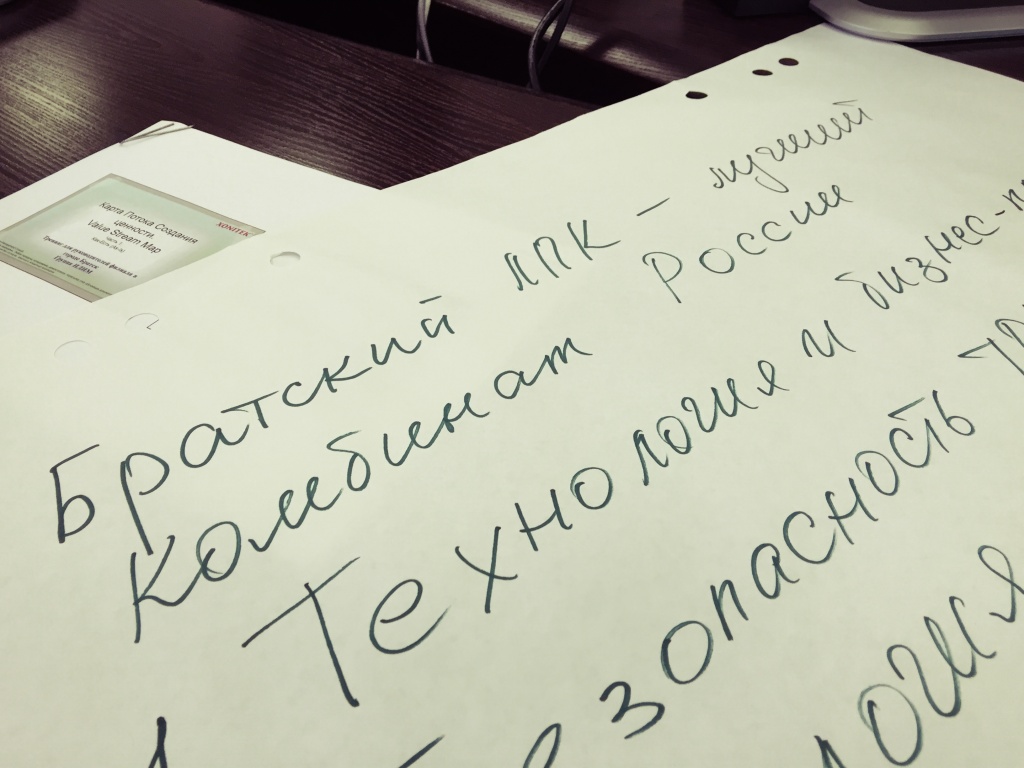 XONITEK
Карта Потока Создания
ценности.
Value Stream Map
Часть 1.
Тренинг для руководителей филиала в
городе Братск
Группа ИЛИМ
Братский ЛПК – лучший
Комбинат России
Технология и бизнес-п
Безопасность
логия